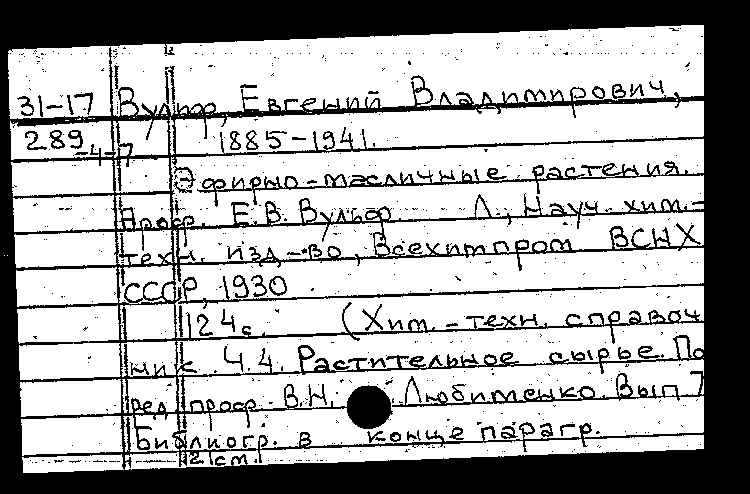 31-17 Вульф, Евгений Владимирович,
289 1885-1941.
-4-7
Эфирно-масличные растения.
Проф. Е.В. Вульф. Л., Науч. хим.-
техн. изд-во, Всехимпром ВСНХ
СССР, 1930
124с. (Хим.-техн. справоч
ник Ч.4. Растительное сырье. По
ред проф. В.Н. Любименко. Вып 7
Библиогр. в конце парагр.
21см.